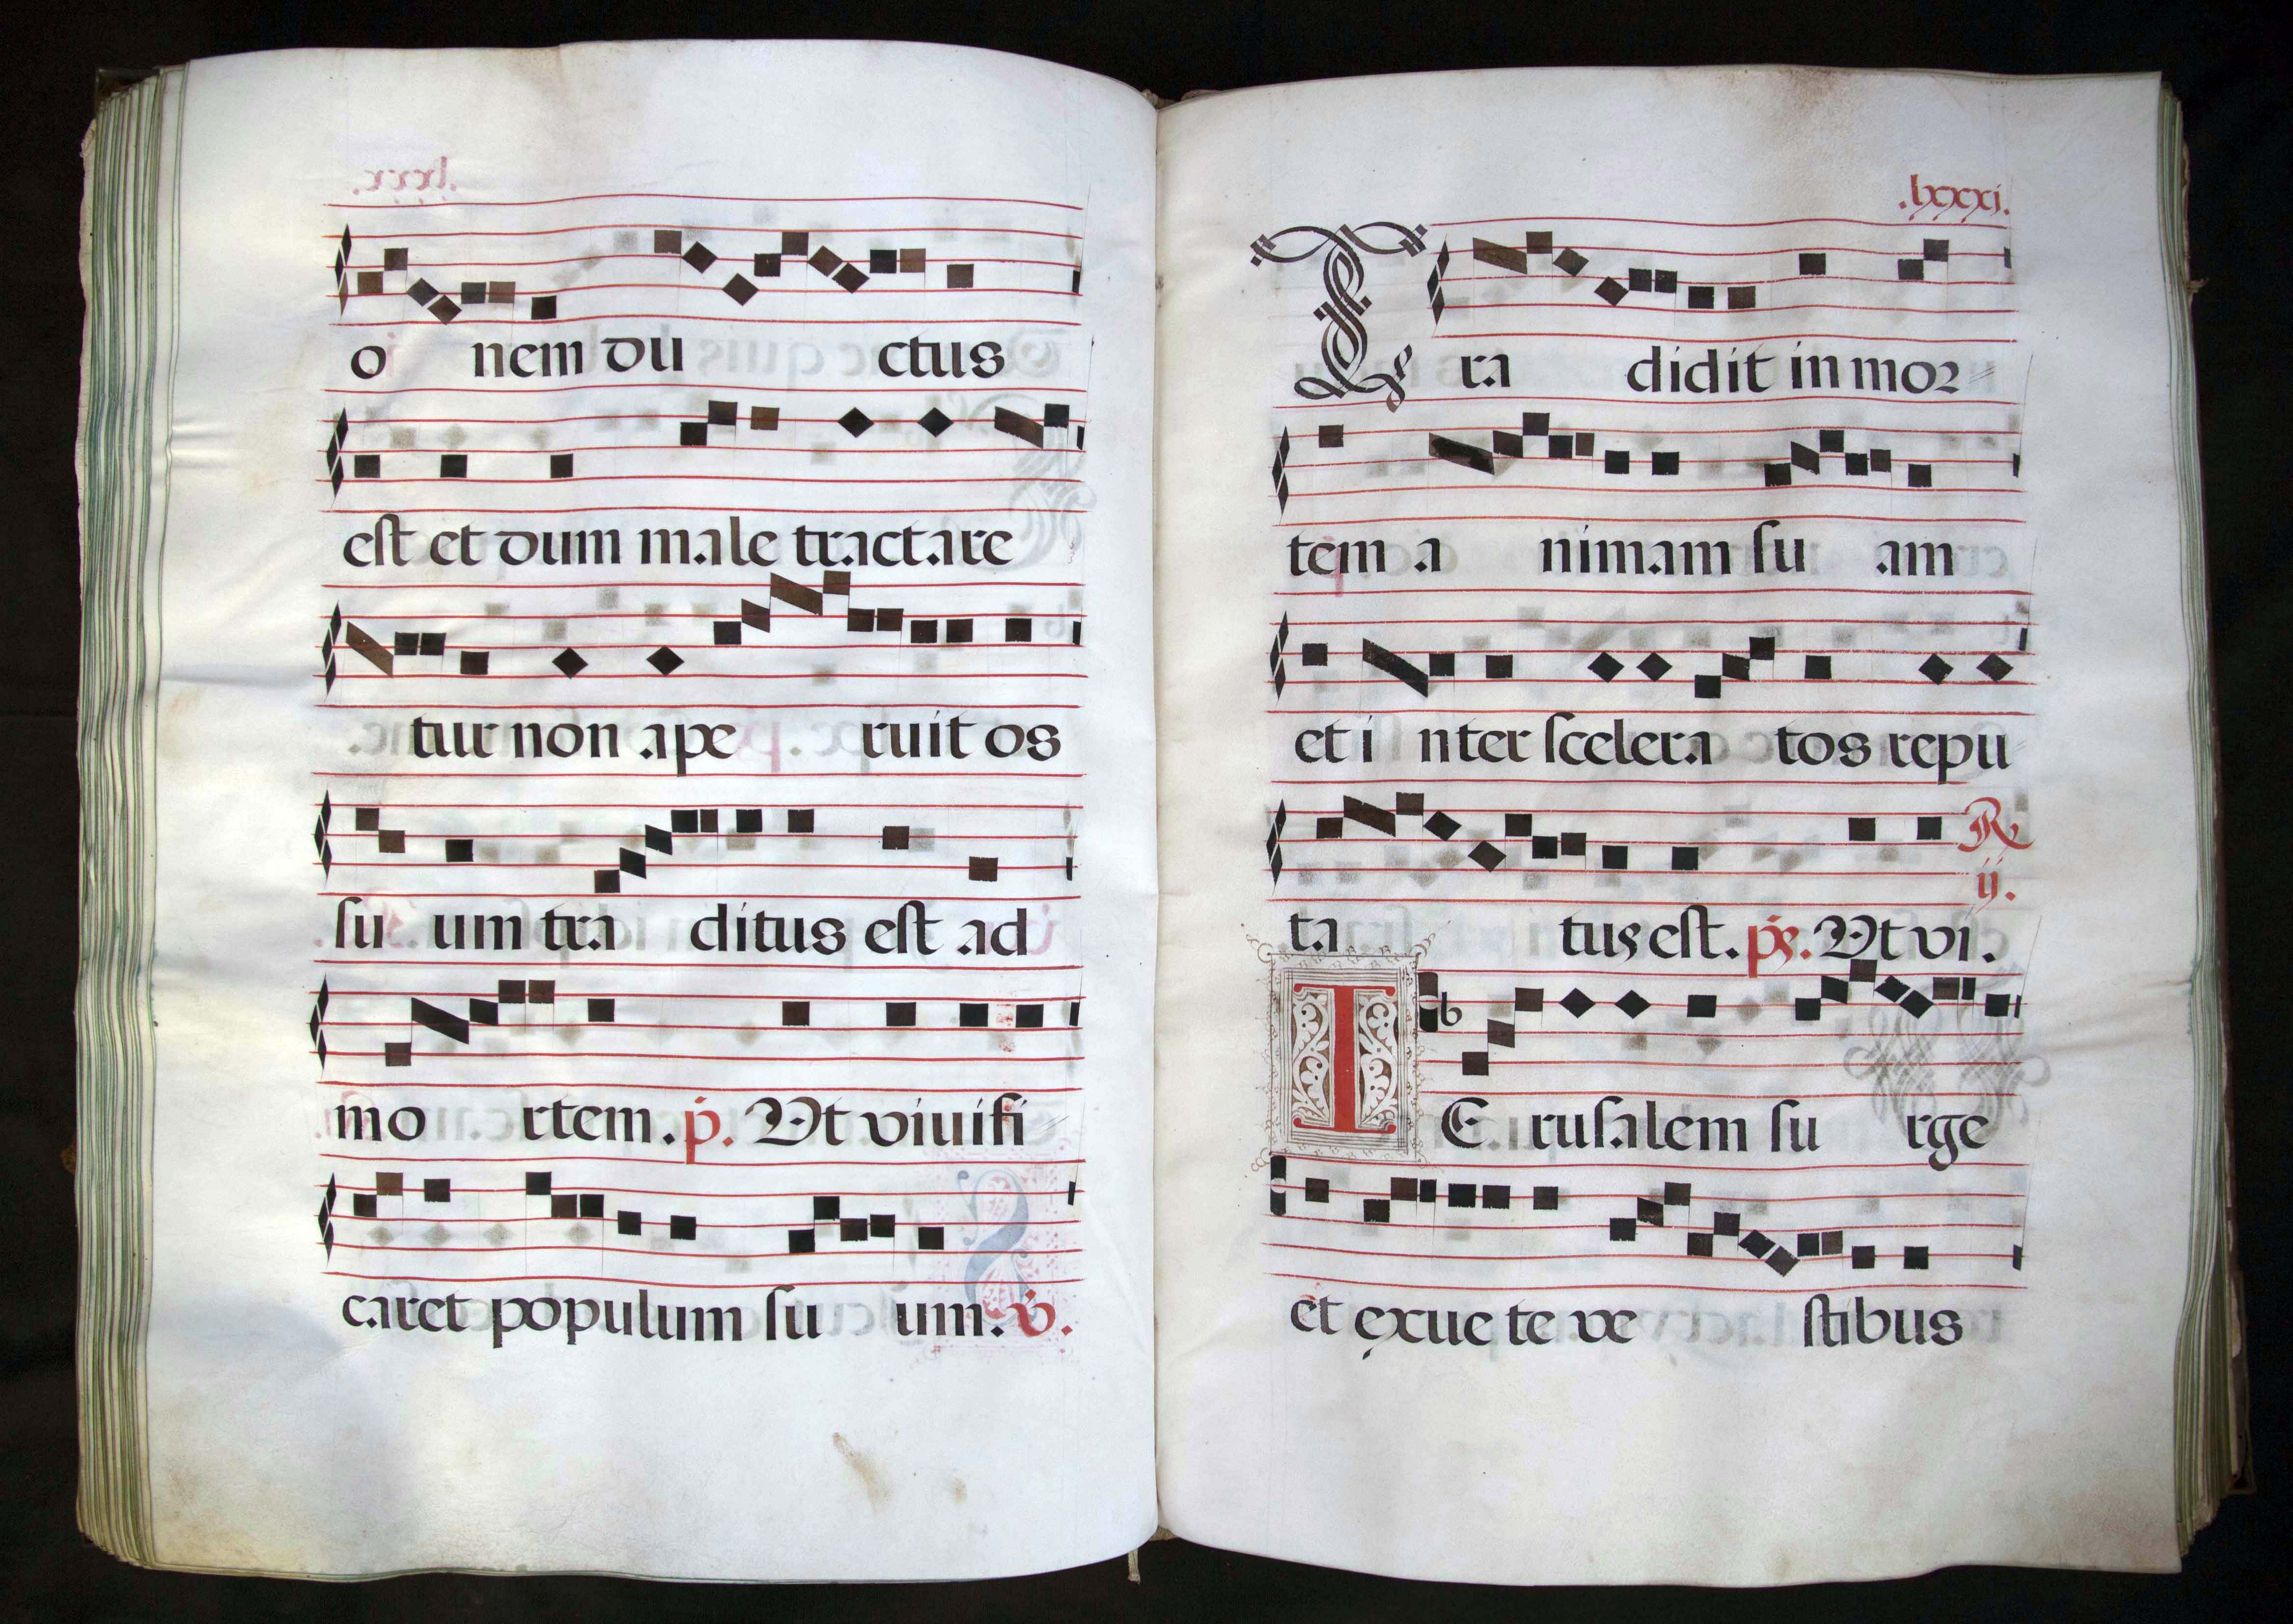 o nem du ctus
est et dum male tractare
tur non ape ruit os
su um tra ditus est ad
mo rtem. p. Vt viuifi
caret populum su um. v.
.lxxxi.
Tra didit in mor
tem a nimam su am
et i nter scelera tos repu
R
ij.
ta tus est. ps. Vt vi.
IE rusalem su rge
et exue te ve stibus